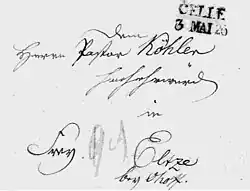 CELLE
3 MAI 26
Dem
Herrn Pastor Köhler
hochehrwürd
in
Frey. Eltze
bey Ohof.